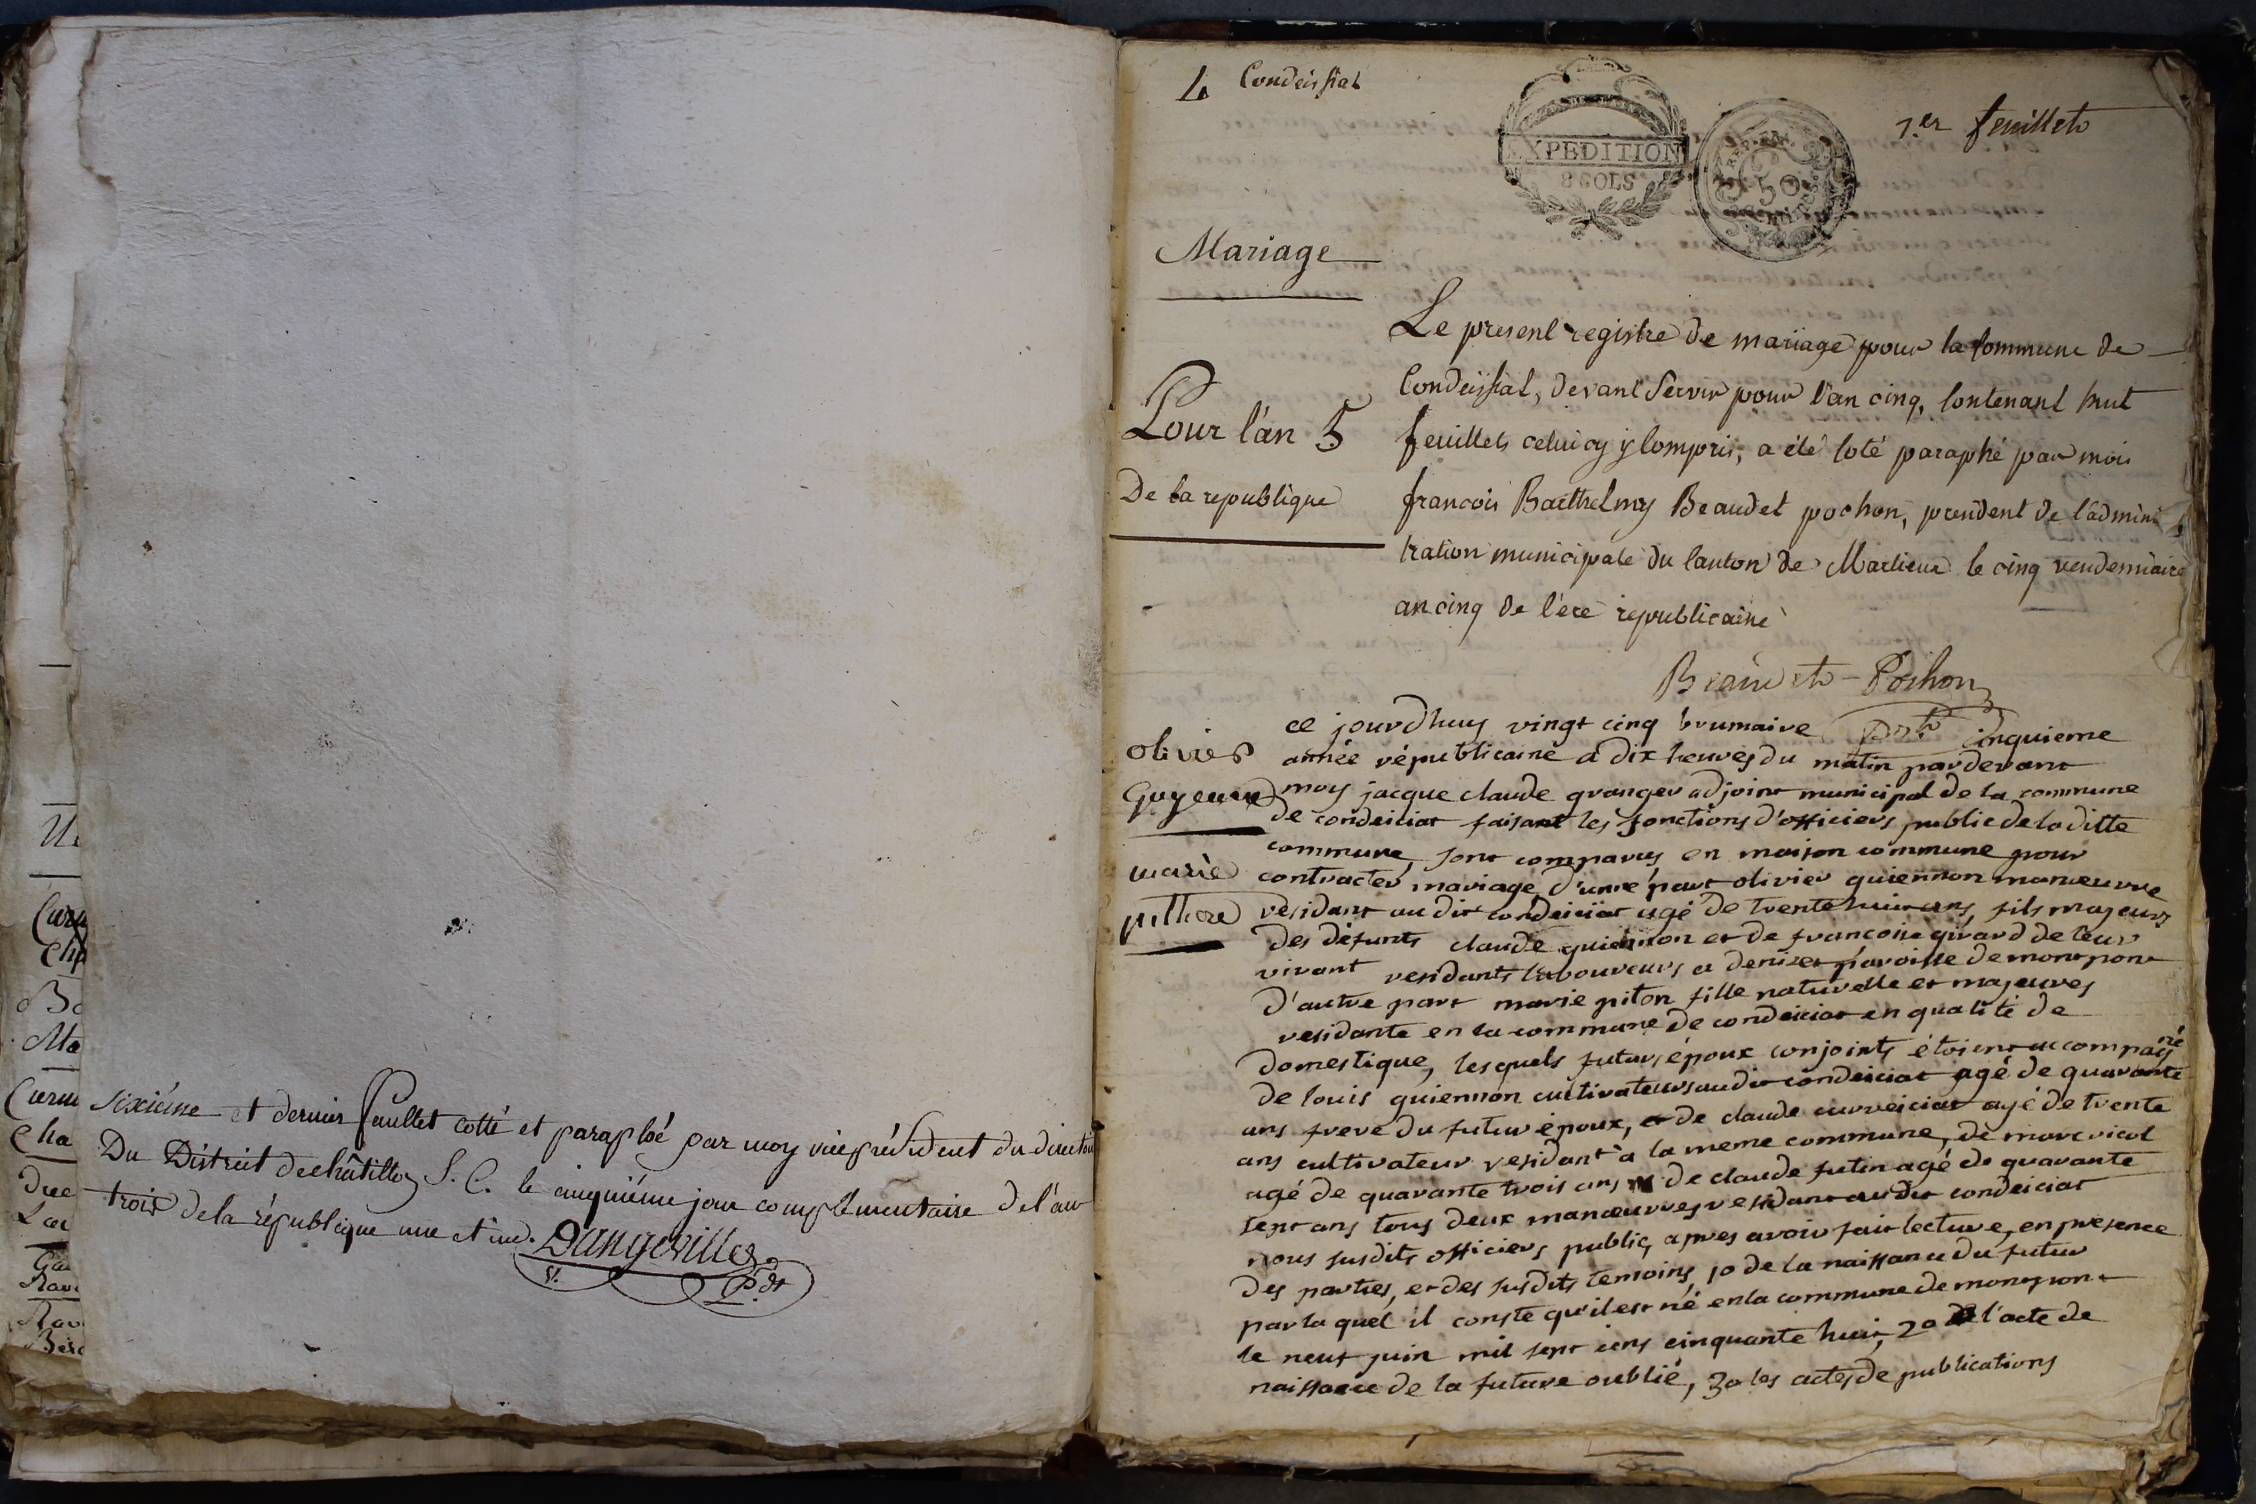 sixiéme et dernier feuillet cotté et paraphé par moy vice président du directoi
Du District de châtillon S. C. le cinquiéme jour complémentaire de l'an
trois de la république une et ind.
Dangeville
v. Pdt
L Condeissiat
1.er feuillet
EXPEDITION
8 SOLS
REP. FRA.
50
CENTIMES
Mariage
Pour l'án 5
De la republique
Le present registre de mariage pour la Commune de
Condeissiat, devant Servir pour l'an cinq, Contenant huit
feuillets celui cy y Compris, a été Coté paraphé par moi
francois Barthelmy Beaudet pochon, president de l'adminis
tration municipale du Canton de Marlieux le cinq vendemiaire
an cinq de l'ere republicaine
Beaudet-Pochon
pdt
olivier
Guyenne
marie
pithere
ce jourdhuy vingt cinq brumaire cinquieme
année républicaine a dix heures du matin pardevant
moy jacque claude granger adjoint municipal de la commune
de condeiciat faisant les fonctions d'officiers public de la ditte
commune, sont comparus en maison commune pour
contracter mariage d'une part olivier guiennon manœuvre
résidant au dit condeiciat agé de trente huit ans, fils majeurs
des défunts claude guiennon et de francoise girard de leur
vivant residants laboureurs a denizet paroisse de montpont
d'autre part marie piton fille naturelle et majeures
residante en la commune de condeiciat en qualité de
domestique, lesquels futurs époux conjoints étoient accompagné
de louis guiennon cultivateurs audit condeiciat agé de quarante
ans frere du futur époux, et de claude curveiciat agé de trente
ans cultivateur residant à la meme commune, de marc vicol
agé de quarante trois ans de claude futin agé de quarante
sept ans tous deux manœuvres residant au dit condeiciat
nous susdits officiers public, apres avoir fait lecture, en presence
des parties, et des susdits temoins, 1o de la naissance du futur
par la quel il conste qu'il est né en la commune de montpont
le neuf juin mil sept cens cinquante huit, 2o de l'acte de
naissance de la future oublié, 3o les actes de publications